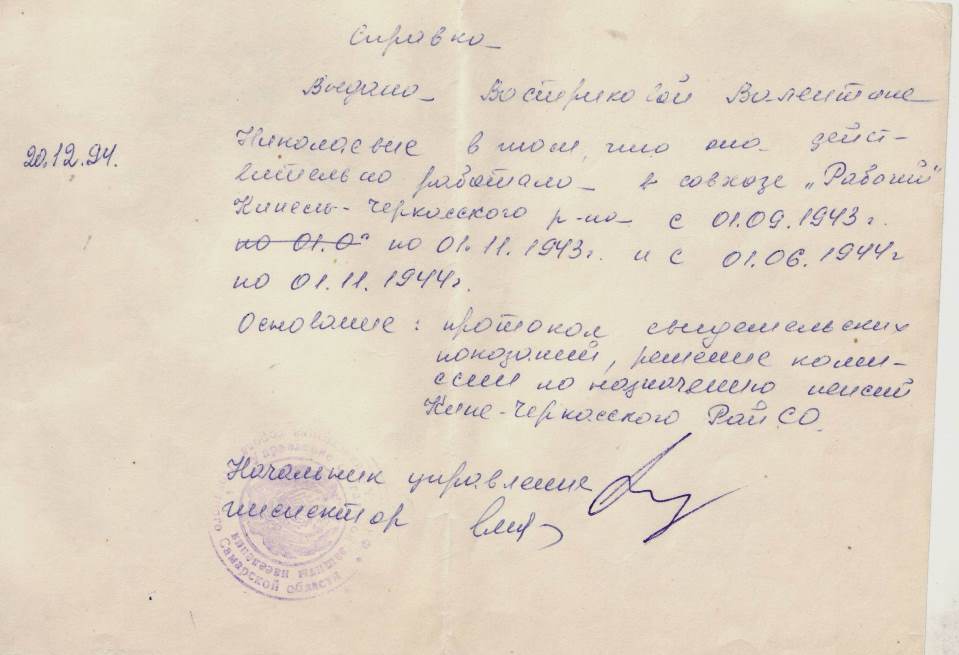 Справка
Выдана Востриковой Валентине
20.12.94.
Николаевне в том, что она дейст-
вительно работала в совхозе „Рабочий"
Кинель-Черкасского р-на с 01.09.1943 г.
по 01.0 по 01.11.1943г. и с 01.06.1944г
по 01.11.1944г.
Основание: протокол свидетельских
показаний, решение комис-
сии по назначению пенсий
Кине-Черкасского РайСО.
Начальник управления
инспектор
Самарской области